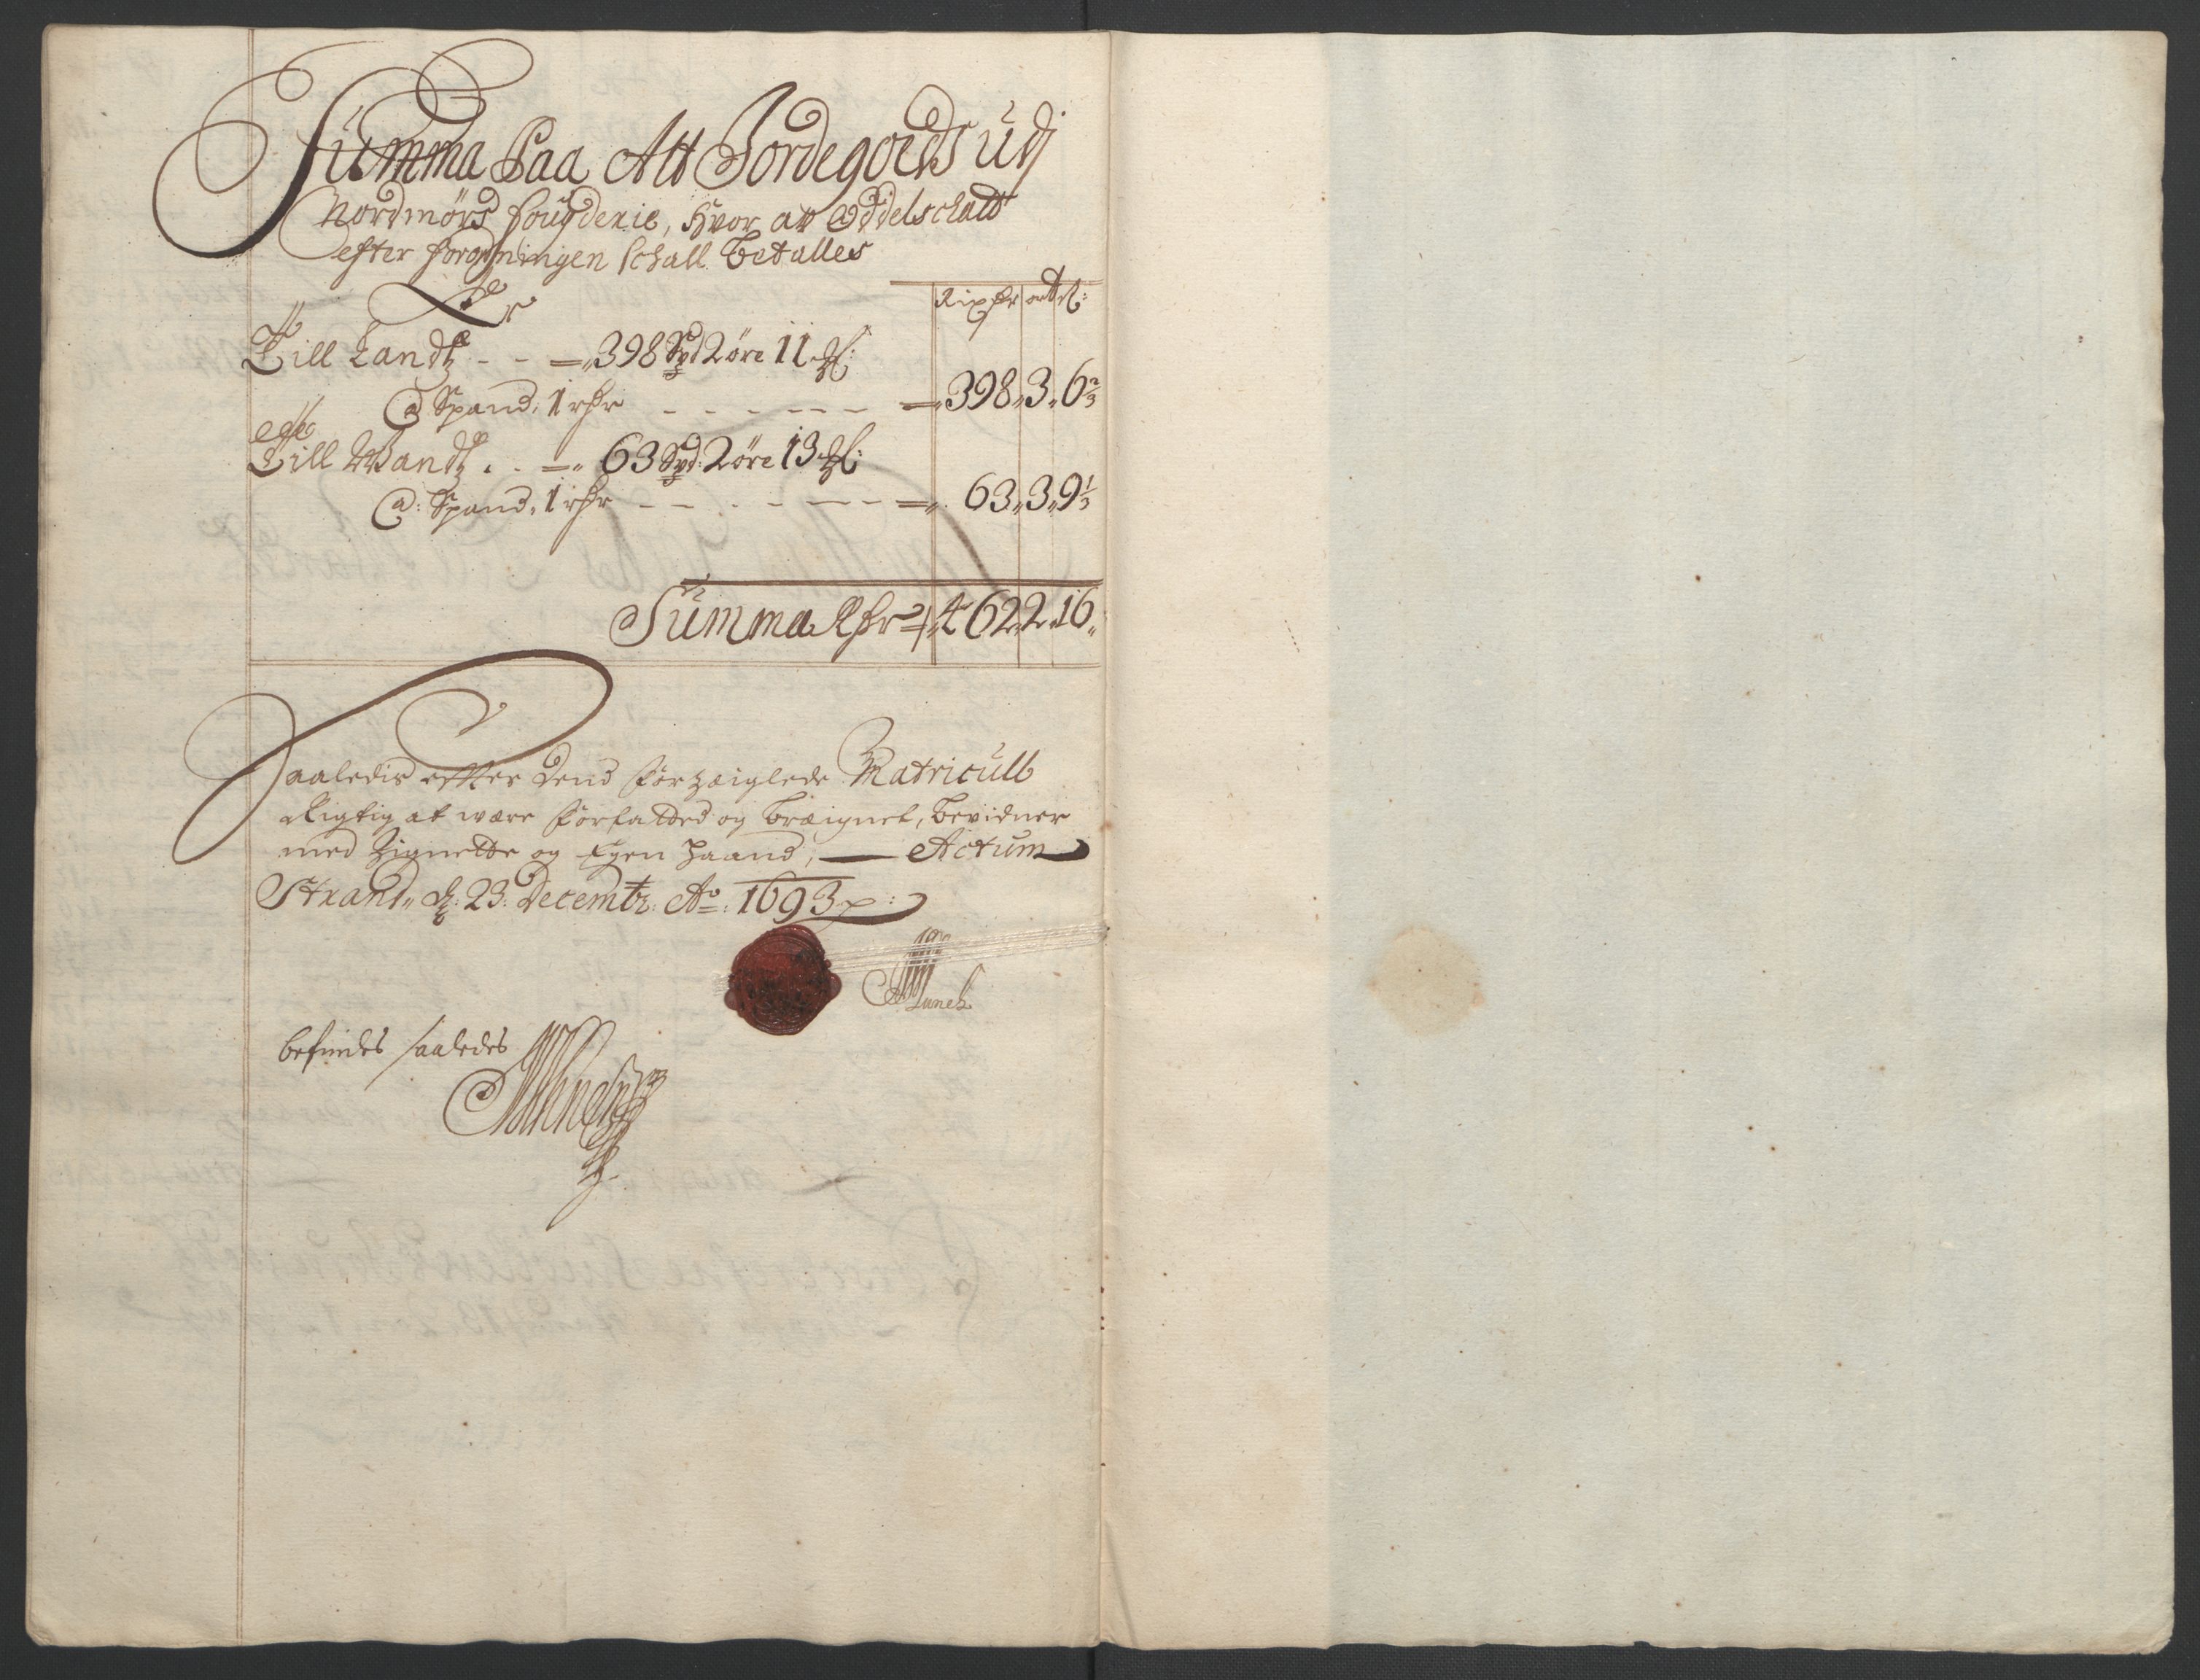 Summa Paa Alt Jordegoeds udj
Nordmørs fougderie, Hvor av Oddelschatt
efter forordningen schall Betalles
Er
Rixdr ortt s:
Till Landtz - - =„398 Spd 2 øre 11 ml:
@ Spand: 1 rdr - - - - - - =„398„3„6 2/3
Till Wandtz . . =„ 63 Spd: 2 øre 13 ml:
@: Spand„ 1 rdr - - - - - - =„ 63„3„9 1/3
Summa Rdr =„462„2„16„
Saaledis effter dend forzeiglede Matricull
Rigtig at være forfatted og Beregnet, Bevidner
med Zignette og Egen Haand, — Actum
Strand„ d: 23: Decembr: Ao: 1693 p:
Munch
befindes saaledes